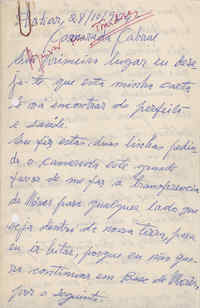 28/10/972
Camarada Cabral
Em primeiro lugar eu dese
ja-te que esta minha carta
vá encontrar de perfeita
e saúde.
Eu fiz estas duas linhas pedin
do o camarada este grande
favor de me faz a transferência
de Morés para qualquer lado que
seja dentro de nossa terra, para
eu ir lutar, porque eu não que
ro continuar em Base de Morés,
por o seguinte